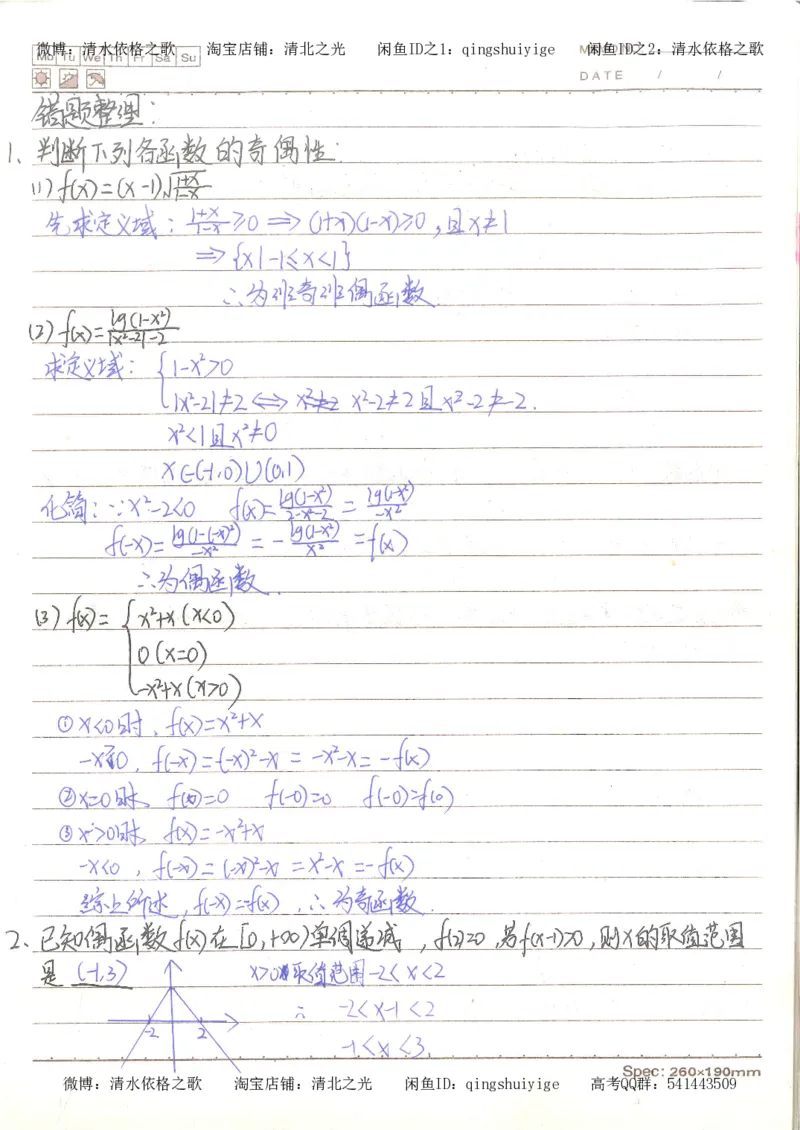 微博：清水依格之歌 淘宝店铺：清北之光 闲鱼ID之1：qingshuiyige 闲鱼ID之2：清水依格之歌
Mo Tu We Th Fr Sa Su
DATE / /
错题整理：
1、判断下列各函数的奇偶性：
(1) f(x)=(x-1)√((1+x)/(1-x))
先求定义域：(1+x)/(1-x)≥0 ⟹ (1+x)(1-x)≥0，且x≠1
⟹ {x|-1≤x<1}
∴为非奇非偶函数.
(2) f(x)=lg(1-x²)/(|x²-2|-2)
求定义域：{ 1-x²>0
|x²-2|≠2 ⟺ x²-2≠2且x²-2≠-2.
x²<1且x²≠0
x∈(-1,0)∪(0,1)
化简：∵x²-2<0 f(x)=lg(1-x²)/(2-x²-2) = lg(1-x²)/(-x²)
f(-x)=lg(1-(-x)²)/(-x²) = -lg(1-x²)/x² =f(x)
∴为偶函数.
(3) f(x)= { x²+x (x<0)
0 (x=0)
-x²+x (x>0)
①x<0时，f(x)=x²+x
f(-x)=-(-x)²-x = -x²-x = -f(x)
②x=0时，f(0)=0 f(-0)=0 f(-0)=f(0)
③x>0时，f(x)=-x²+x
-x<0，f(-x)=(-x)²-x =x²-x =-f(x)
综上所述，f(-x)=-f(x)，∴为奇函数.
2、已知偶函数f(x)在[0,+∞)单调递减，f(2)=0，若f(x-1)>0，则x的取值范围
是 (-1,3) x>0 取值范围-2<x<2
∴ -2<x-1<2
-2 2
-1<x<3.
Spec: 260×190mm
微博：清水依格之歌 淘宝店铺：清北之光 闲鱼ID：qingshuiyige 高考QQ群：541443509